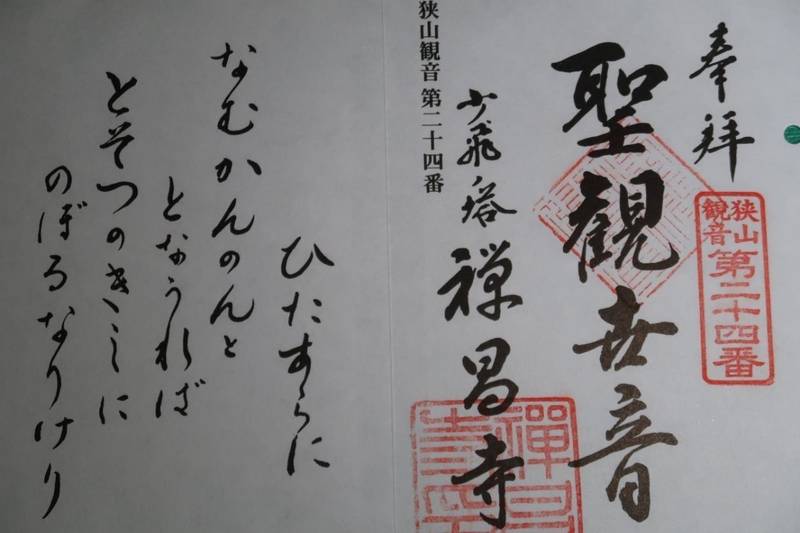 奉拝
狭山
観音
第二十四番
聖観世音
少飛ノ塔 禅昌寺
狭山観音 第二十四番
ひたすらに
なむかんのんと
となうれば
とそつのきしに
のぼるなりけり